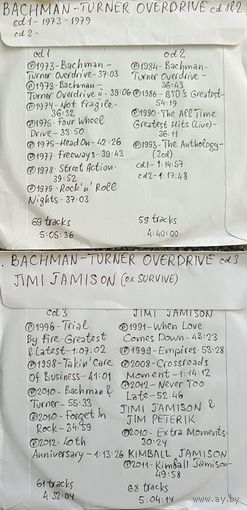 BACHMAN-TURNER OVERDRIVE cd 1&2
cd 1 - 1973 - 1979
cd 2 -
cd 1
℗1973-Bachman-
Turner Overdrive-37:03
℗1973-Bachman-
Turner Overdrive ii-39:06
℗1974-Not Fragile-
36:32
℗1975-Four Wheel
Drive-33:50
℗1975-Head On-42:26
℗1977-Freeways-39:43
℗1978-Street Action-
39:52
℗1979-Rock'n'Roll
Nights-37:03
69 tracks
5:05:36
cd 2
℗1984-Bachman-
Turner Overdrive-
36:43
℗1986-BTO's Greatest-
54:19
℗1990-The All Time
Greatest Hits (Live)-
36:11
℗1993-The Anthology-
(2cd)
cd1-1:14:57
cd2-1:17:48
59 tracks
4:40:00
BACHMAN-TURNER OVERDRIVE cd 3
JIMI JAMISON (ex SURVIVE)
cd 3
℗1996-Trial
By Fire-Greatest
& Latest-1:07:02
℗1998-Takin' Care
of Business-41:01
℗2010-Bachman &
Turner-55:33
℗2010-Forget In
Rock-34:59
℗2012-40th
Anniversary-1:13:26
61 tracks
4:32:04
JIMI JAMISON
℗1991-When Love
Comes Down-43:23
℗1999-Empires-53:28
℗2008-Crossroads
Moment-1:14:12
℗2012-Never Too
Late-52:46
JIMI JAMISON &
JIM PETERIK
℗2010-Extra Moments-
30:24
KIMBALL JAMISON
℗2011-Kimball Jamison-
49:58
68 tracks
5:04:14
www.ay.by